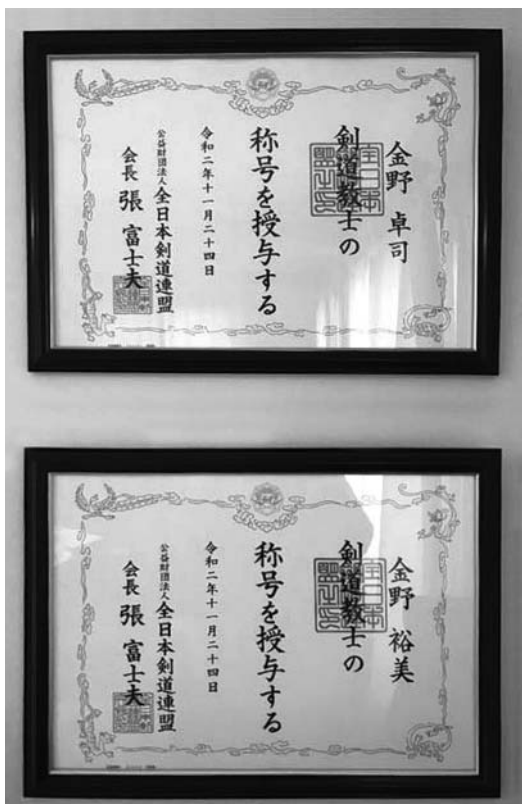 金野 卓司
剣道教士の
称号を授与する
令和二年十一月二十四日
公益財団法人 全日本剣道連盟
会長 張 富士夫
金野 裕美
剣道教士の
称号を授与する
令和二年十一月二十四日
公益財団法人 全日本剣道連盟
会長 張 富士夫